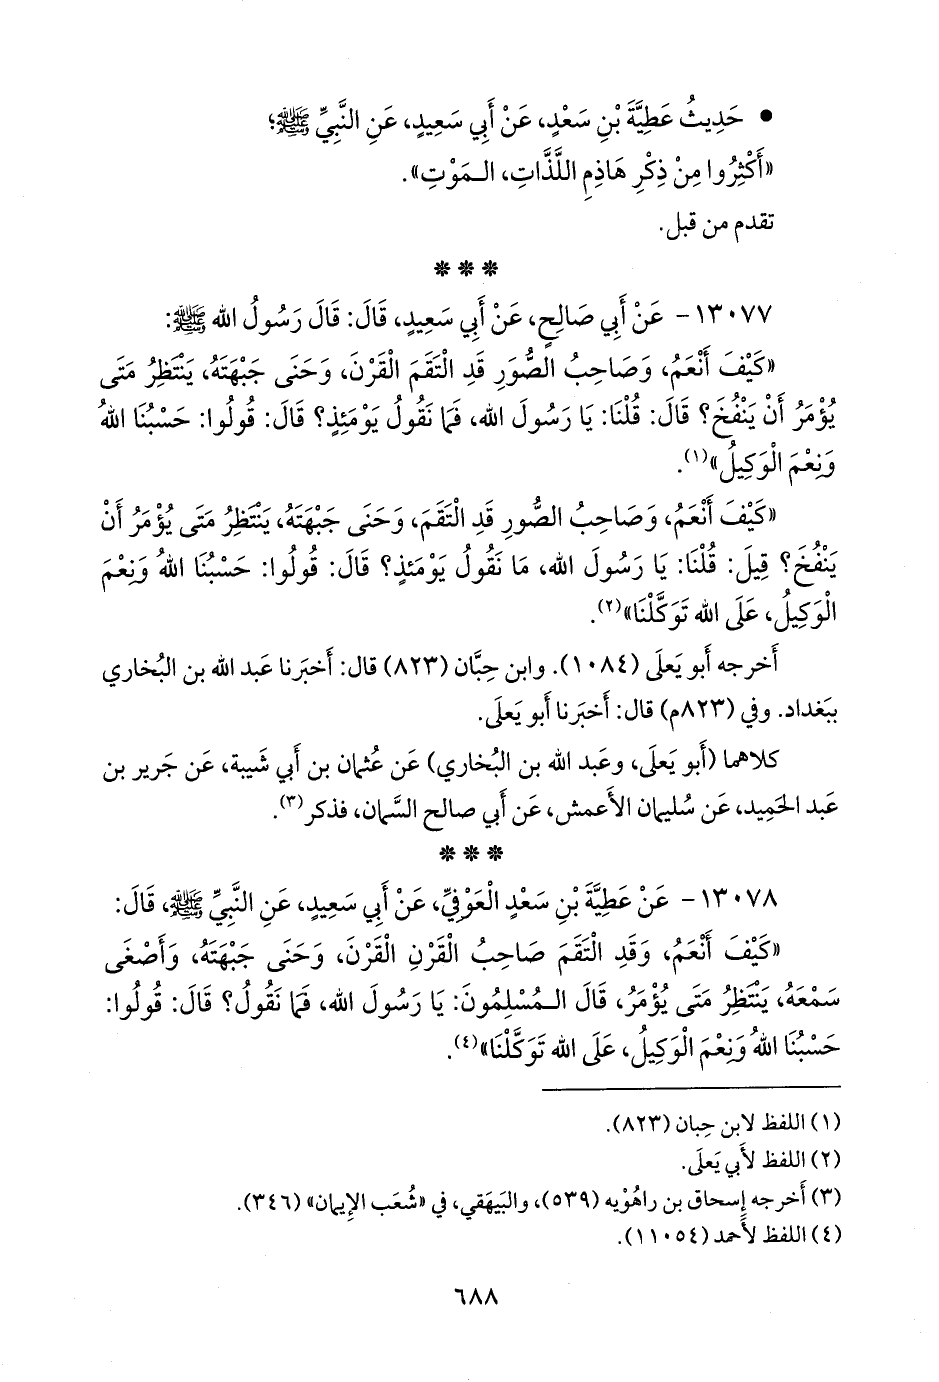 • حَدِيثُ عَطِيَّةَ بْنِ سَعْدٍ، عَنْ أَبِي سَعِيدٍ، عَنِ النَّبِيِّ ﷺ؛
«أَكْثِرُوا مِنْ ذِكْرِ هَاذِمِ اللَّذَّاتِ، الـمَوْتِ».
تقدم من قبل.
* * *
١٣٠٧٧- عَنْ أَبِي صَالِحٍ، عَنْ أَبِي سَعِيدٍ، قَالَ: قَالَ رَسُولُ الله ﷺ:
«كَيْفَ أَنْعَمُ، وَصَاحِبُ الصُّوَرِ قَدِ الْتَقَمَ الْقَرْنَ، وَحَنَى جَبْهَتَهُ، يَنْتَظِرُ مَتَى
يُؤْمَرُ أَنْ يَنْفُخَ؟ قَالَ: قُلْنَا: يَا رَسُولَ الله، فَمَا نَقُولُ يَوْمَئِذٍ؟ قَالَ: قُولُوا: حَسْبُنَا اللهُ
وَنِعْمَ الْوَكِيلُ»(١).
«كَيْفَ أَنْعَمُ، وَصَاحِبُ الصُّورِ قَدِ الْتَقَمَ، وَحَنَى جَبْهَتَهُ، يَنْتَظِرُ مَتَى يُؤْمَرُ أَنْ
يَنْفُخَ؟ قِيلَ: قُلْنَا: يَا رَسُولَ الله، مَا نَقُولُ يَوْمَئِذٍ؟ قَالَ: قُولُوا: حَسْبُنَا اللهُ وَنِعْمَ
الْوَكِيلُ، عَلَى الله تَوَكَّلْنَا»(٢).
أَخرجه أَبو يَعلَى (١٠٨٤). وابن حِبَّان (٨٢٣) قال: أَخبَرنا عَبد الله بن البُخاري
ببَغداد. وفي (٨٢٣م) قال: أَخبَرنا أَبو يَعلَى.
كلاهما (أَبو يَعلَى، وعَبد الله بن البُخاري) عَن عُثمان بن أَبي شَيبة، عَن جَرير بن
عَبد الحَمِيد، عَن سُليمان الأَعمش، عَن أَبي صالح السَّمان، فذكر(٣).
* * *
١٣٠٧٨- عَنْ عَطِيَّةَ بْنِ سَعْدٍ الْعَوْفِيِّ، عَنْ أَبِي سَعِيدٍ، عَنِ النَّبِيِّ ﷺ، قَالَ:
«كَيْفَ أَنْعَمُ، وَقَدِ الْتَقَمَ صَاحِبُ الْقَرْنِ الْقَرْنَ، وَحَنَى جَبْهَتَهُ، وَأَصْغَى
سَمْعَهُ، يَنْتَظِرُ مَتَى يُؤْمَرُ، قَالَ الـمُسْلِمُونَ: يَا رَسُولَ الله، فَمَا نَقُولُ؟ قَالَ: قُولُوا:
حَسْبُنَا اللهُ وَنِعْمَ الْوَكِيلُ، عَلَى الله تَوَكَّلْنَا»(٤).
(١) اللفظ لابن حِبان (٨٢٣).
(٢) اللفظ لأَبي يَعلَى.
(٣) أَخرجه إِسحاق بن راهُوْيه (٥٣٩)، والبَيهَقي، في «شُعَب الإِيمان» (٣٤٦).
(٤) اللفظ لأَحمد (١١٠٥٤).
٦٨٨